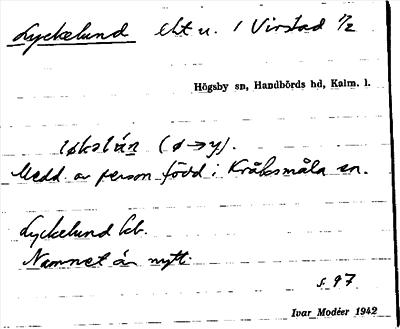 Lyckelund lht u. 1 Virstad 1/2
Högsby sn, Handbörds hd, Kalm. l.
(ø→y).
Medd. av person född i Kråksmåla sn.
Lyckelund kb.
Namnet är nytt.
s. 97
Ivar Modéer 1942